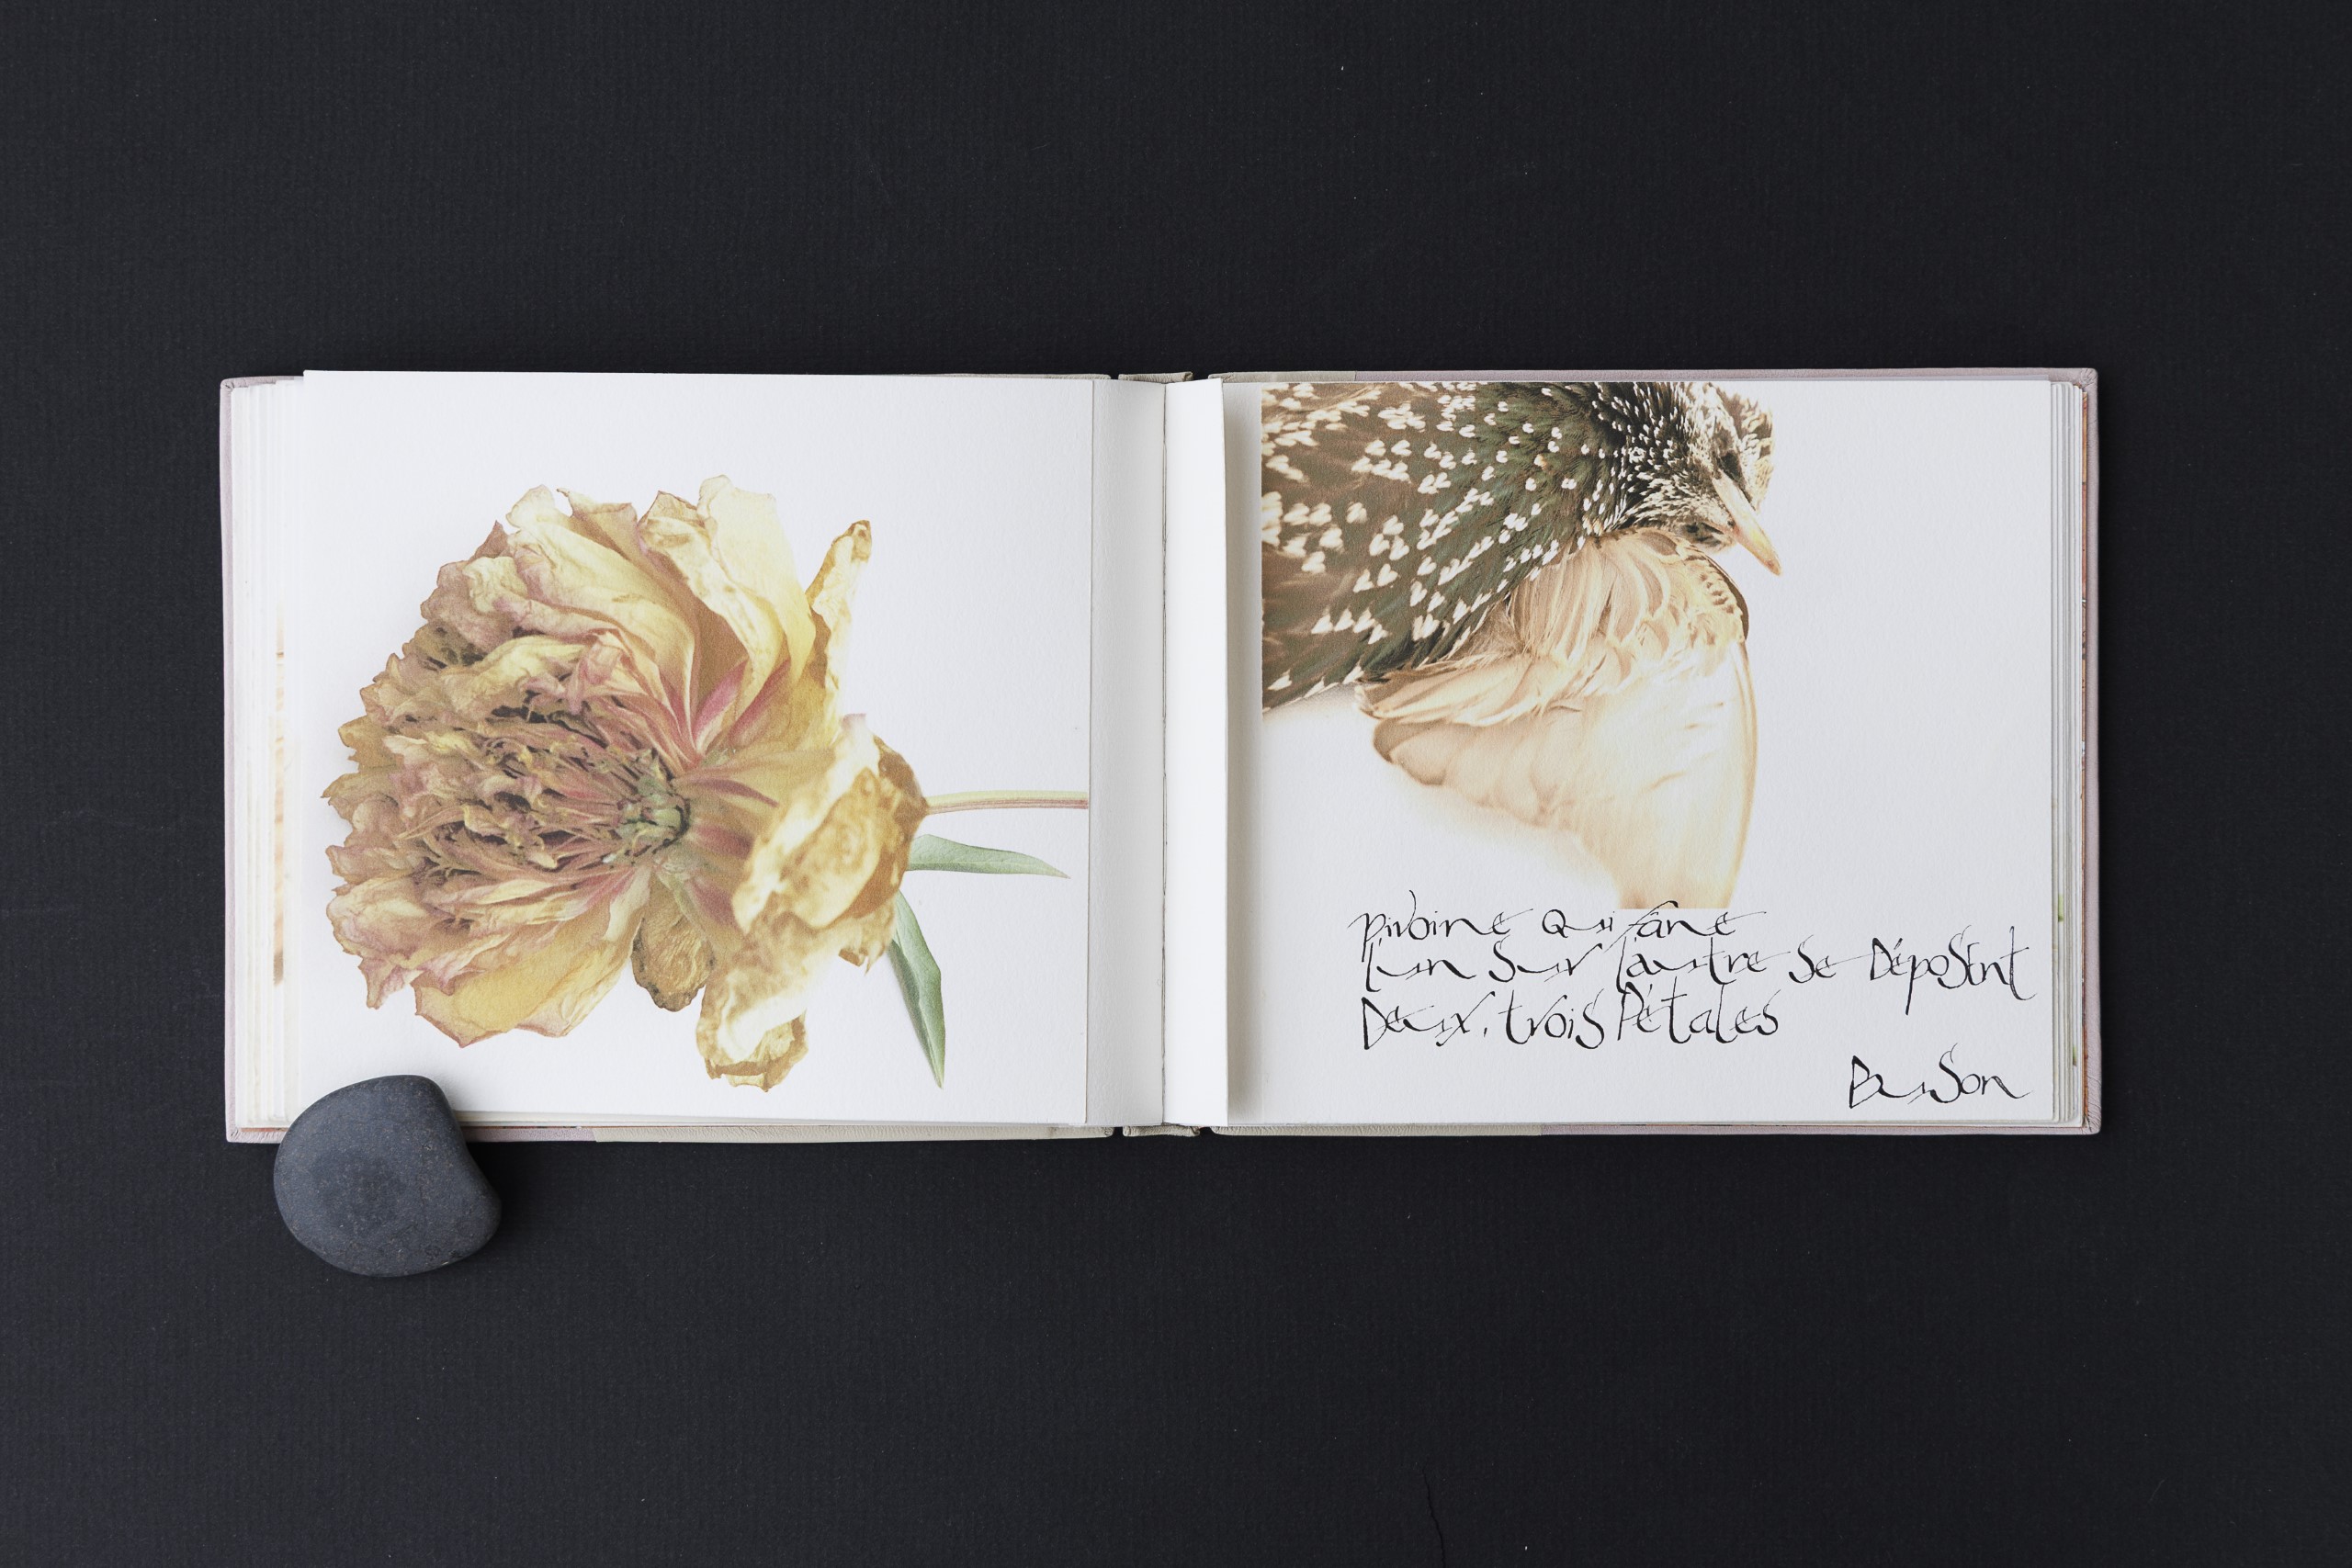 pivoine qui fane
l'un sur l'autre se DéposEnt
Deux, trois Pétales
BuSon